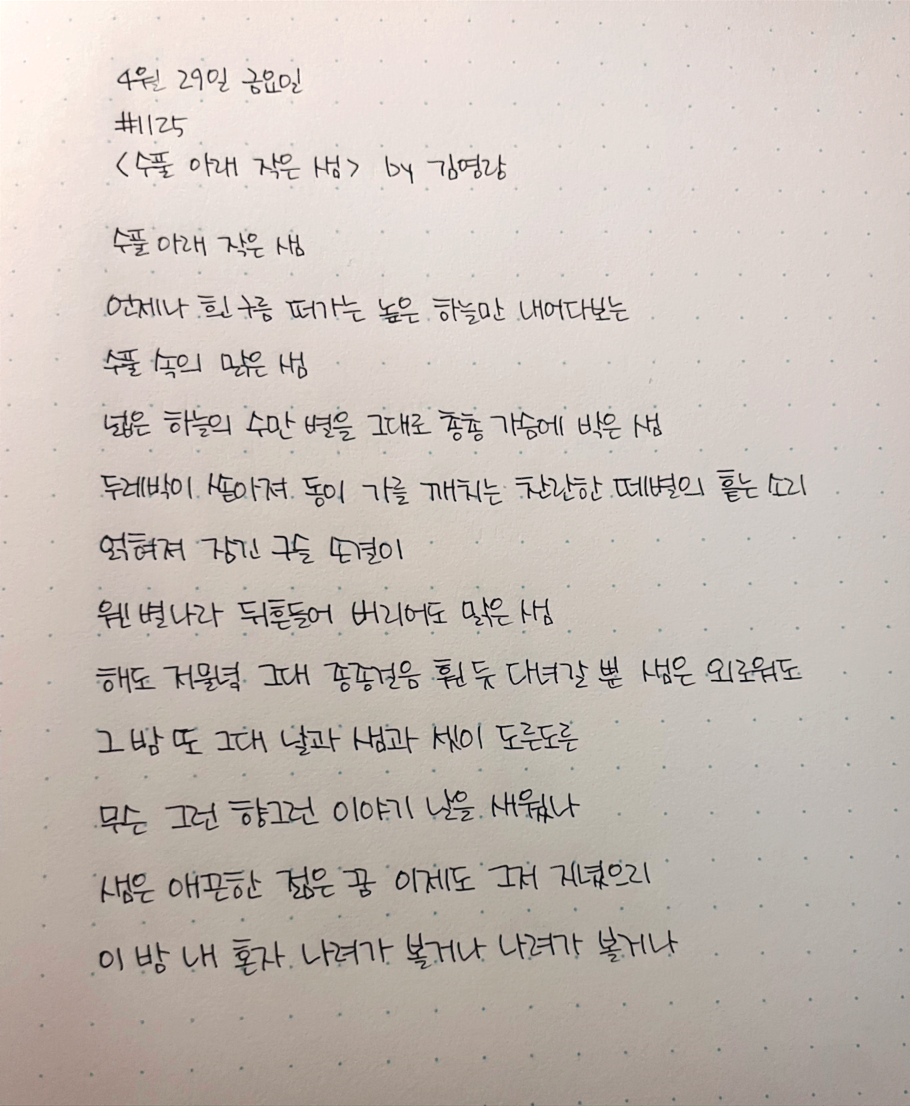 4월 29일 금요일
#1125
<수풀 아래 작은 샘> by 김영랑
수풀 아래 작은 샘
언제나 흰 구름 떠가는 높은 하늘만 내어다보는
수풀 속의 맑은 샘
넓은 하늘의 수만 별을 그대로 총총 가슴에 박은 샘
두레박이 쏟아져 동이 가를 깨치는 찬란한 떼별의 흩는 소리
얽혀져 잠긴 구슬 또결이
웬 별나라 뒤흔들어 버리어도 맑은 샘
해도 저물녘 그대 종종걸음 훤 듯 다녀갈 뿐 샘은 외로워도
그 밤 또 그대 날과 샘과 셋이 도른도른
무슨 그런 향그런 이야기 날을 새웠나
샘은 애끈한 젊은 꿈 이제도 그저 지녔으리
이 밤 내 혼자 나려가 볼거나 나려가 볼거나